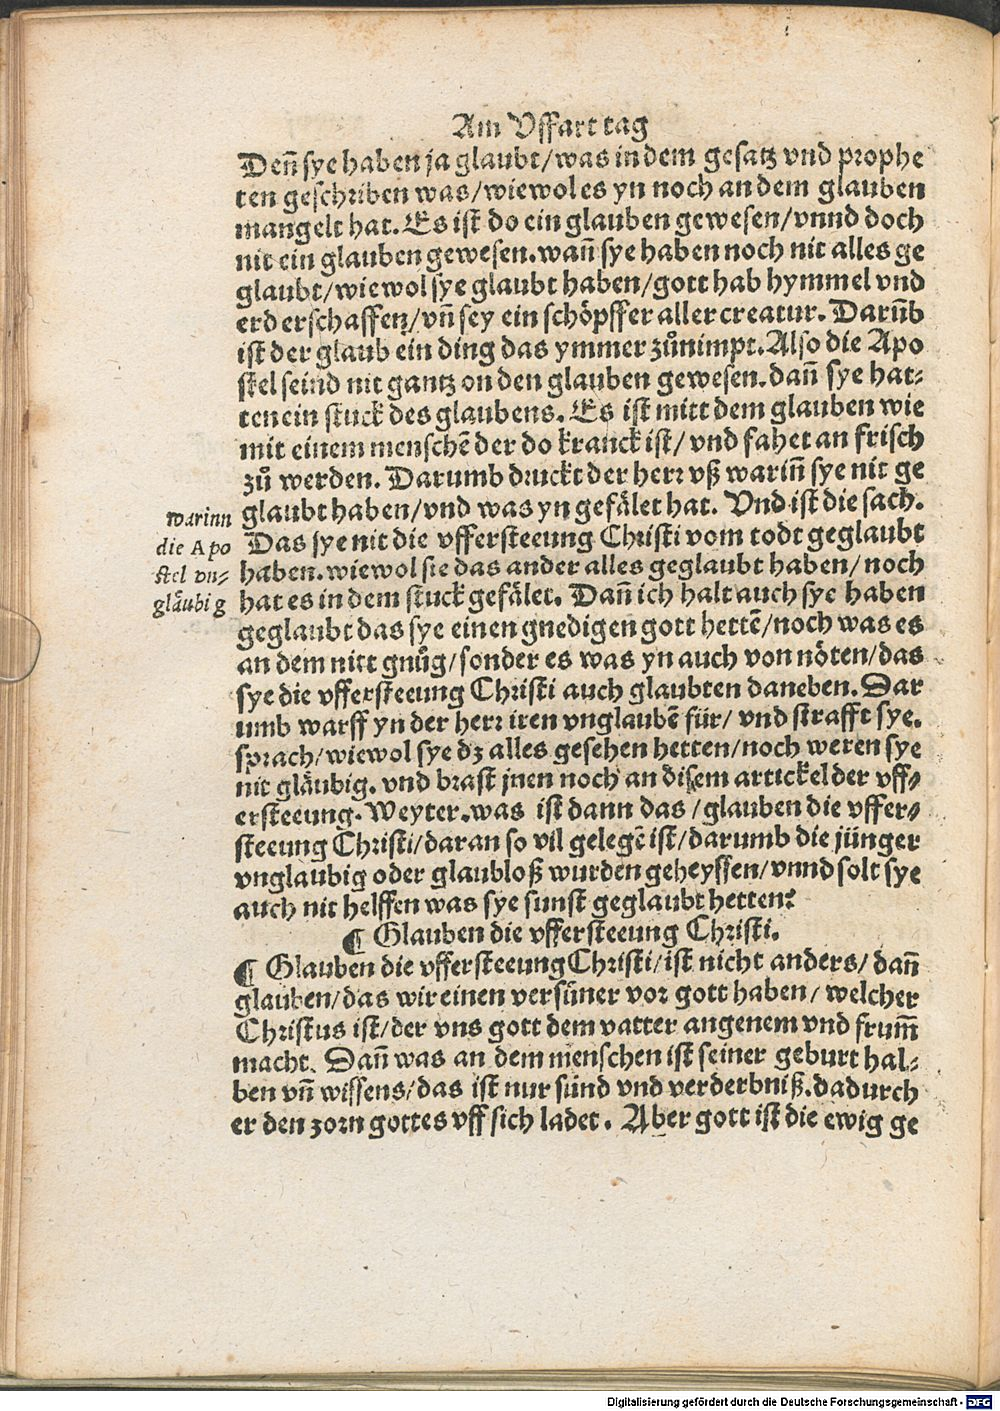 Am Vffart tag
Deñ sye haben ja glaubt/was in dem gesatz vnd prophe
ten geschriben was/wiewol es yn noch an dem glauben
mangelt hat. Es ist do ein glauben gewesen/vnnd doch
nit ein glauben gewesen. wañ sye haben noch nit alles ge
glaubt/wiewol sye glaubt haben/gott hab hymmel vnd
erd erschaffen/vñ sey ein schöpffer aller creatur. Darũb
ist der glaub ein ding das ymmer zůnimpt. Also die Apo
stel seind nit gantz on den glauben gewesen. dañ sye hat⸗
ten ein stuck des glaubens. Es ist mitt dem glauben wie
mit einem menschẽ der do kranck ist/ vnd fahet an frisch
zů werden. Darumb druckt der herr vß warinñ sye nit ge
glaubt haben/vnd was yn gefälet hat. Vnd ist die sach.
Das sye nit die vffersteeung Christi vom todt geglaubt
haben. wiewol sie das ander alles geglaubt haben/ noch
hat es in dem stuck gefälet. Dañ ich halt auch sye haben
geglaubt das sye einen gnedigen gott hettẽ/noch was es
an dem nitt gnůg/sonder es was yn auch von nöten/das
sye die vffersteeung Christi auch glaubten daneben. Dar
umb warff yn der herr iren vnglaubẽ für/ vnd strafft sye.
sprach/wiewol sye dz alles gesehen hetten/noch weren sye
nit gläubig. vnd brast jnen noch an disem artickel der vff⸗
ersteeung. Weyter. was ist dann das/glauben die vffer⸗
steeung Christi/daran so vil gelegẽ ist/darumb die jünger
vnglaubig oder glaubloß wurden geheyssen/vnnd solt sye
auch nit helffen was sye sunst geglaubt hetten?
¶ Glauben die vffersteeung Christi.
¶ Glauben die vffersteeung Christi/ist nicht anders/ dañ
glauben/das wir einen versüner vor gott haben/ welcher
Christus ist/der vns gott dem vatter angenem vnd frum̃
macht. Dañ was an dem menschen ist seiner geburt hal⸗
ben vñ wissens/das ist nur sünd vnd verderbniß. dadurch
er den zorn gottes vff sich ladet. Aber gott ist die ewig ge
warinn
die Apo
stel vn⸗
gläubig
Digitalisierung gefördert durch die Deutsche Forschungsgemeinschaft - DFG